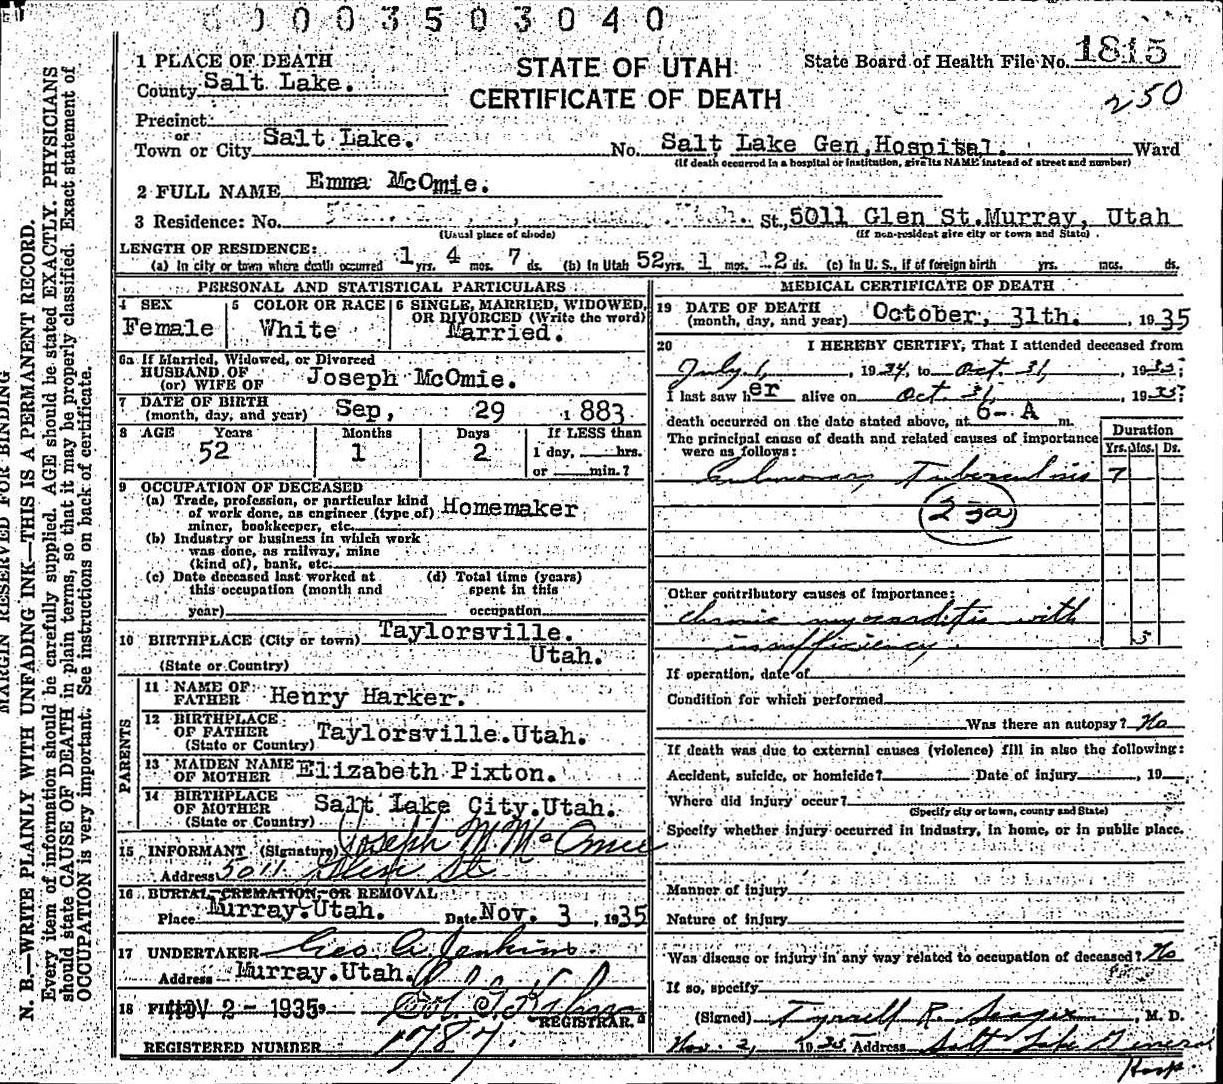 0003503040
1 PLACE OF DEATH
County Salt Lake.
STATE OF UTAH
CERTIFICATE OF DEATH
State Board of Health File No. 1815
250
Precinct
or
Town or City Salt Lake. No. Salt Lake Gen, Hospital. Ward
(If death occurred in a hospital or institution, give its NAME instead of street and number)
2 FULL NAME Emma McOmie.
3 Residence: No. St., 5011 Glen St. Murray, Utah
(Usual place of abode) (If non-resident give city or town and State)
LENGTH OF RESIDENCE:
(a) In city or town where death occurred 1 yrs. 4 mos. 7 ds. (b) In Utah 52 yrs. 1 mos. 2 ds. (c) In U. S., if of foreign birth yrs. mos. ds.
PERSONAL AND STATISTICAL PARTICULARS
4 SEX
Female
5 COLOR OR RACE
White
6 SINGLE, MARRIED, WIDOWED,
OR DIVORCED (Write the word)
Married.
6a If Married, Widowed, or Divorced
HUSBAND OF
(or) WIFE OF Joseph McOmie.
7 DATE OF BIRTH
(month, day, and year) Sep, 29 1883
8 AGE Years Months Days If LESS than
52 1 2 1 day, hrs.
or min.?
9 OCCUPATION OF DECEASED
(a) Trade, profession, or particular kind
of work done, as engineer (type of) Homemaker
miner, bookkeeper, etc.
(b) Industry or business in which work
was done, as railway, mine
(kind of), bank, etc.
(c) Date deceased last worked at
this occupation (month and
year)
(d) Total time (years)
spent in this
occupation
10 BIRTHPLACE (City or town) Taylorsville.
(State or Country) Utah.
PARENTS
11 NAME OF
FATHER Henry Harker.
12 BIRTHPLACE
OF FATHER
(State or Country) Taylorsville.Utah.
13 MAIDEN NAME
OF MOTHER Elizabeth Pixton.
14 BIRTHPLACE
OF MOTHER
(State or Country) Salt Lake City.Utah.
15 INFORMANT (Signature) Joseph M McOmie
Address 5011 Glen St.
16 BURIAL, CREMATION, OR REMOVAL
Place Murray.Utah. Date Nov. 3, 1935
17 UNDERTAKER Geo A. Jenkins
Address Murray.Utah.
18 FILED NOV 2 - 1935
REGISTRAR.
REGISTERED NUMBER 1787.
MEDICAL CERTIFICATE OF DEATH
19 DATE OF DEATH
(month, day, and year) October, 31th. , 1935
20 I HEREBY CERTIFY, That I attended deceased from
July 1, , 1934, to Oct. 31, , 1935;
I last saw her alive on Oct. 31, , 1935;
death occurred on the date stated above, at 6- A m.
The principal cause of death and related causes of importance
were as follows:
Duration
Yrs. Mos. Ds.
Pulmonary Tuberculosis 7
Other contributory causes of importance:
Chronic myocarditis with
insufficiency. 5
If operation, date of
Condition for which performed
Was there an autopsy? No
If death was due to external causes (violence) fill in also the following:
Accident, suicide, or homicide? Date of injury , 19
Where did injury occur?
(Specify city or town, county and State)
Specify whether injury occurred in industry, in home, or in public place.
Manner of injury
Nature of injury
Was disease or injury in any way related to occupation of deceased? No
If so, specify
(Signed) Tyrrell R. Seager , M. D.
Nov. 2, 1935 Address Salt Lake General
Hosp.
MARGIN RESERVED FOR BINDING
N. B.—WRITE PLAINLY WITH UNFADING INK—THIS IS A PERMANENT RECORD.
Every item of information should be carefully supplied. AGE should be stated EXACTLY. PHYSICIANS
should state CAUSE OF DEATH in plain terms, so that it may be properly classified. Exact statement of
OCCUPATION is very important. See instructions on back of certificate.